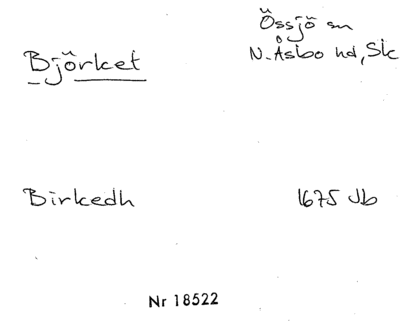 Björket
Össjö sn
N. Åsbo hd, Sk
Birkedh
1675 Jb
Nr 18522